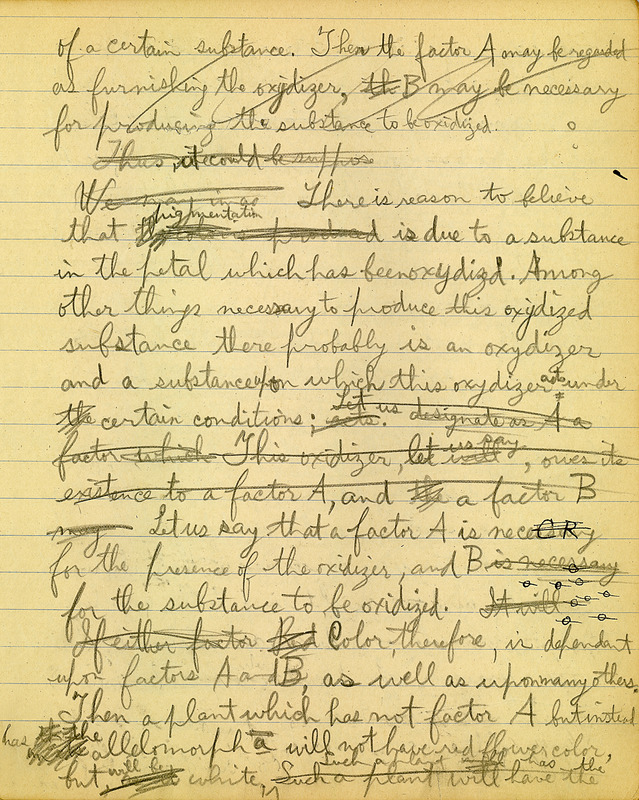 of a certain substance. Then the factor A may be regarded
as furnishing the oxydizer, th B may be necessary
for producing the substance to be oxidized.
Thus, it could be suppos
We may in ao There is reason to believe
higmentation
that is due to a substance
in the petal which has been oxydized. Among
other things necessary to produce this oxydized
substance there probably is an oxydizer
and a substance upon which this oxydizer acts under
the certain conditions; acts. Let us designate as A a
factor which This oxidizer, let us say, owes its
existence to a factor A, and the a factor B
may Let us say that a factor A is necessary CR
for the presence of the oxidizer, and B is necessary
for the substance to be oxidized. It will
If either factor Red Color, therefore, is dependent
upon factors A and B, as well as upon many others.
Then a plant which has not factor A but instead
has the allelomorph a will not have red flower color,
but, will be white, Such a plant will have the
Such a plant has the